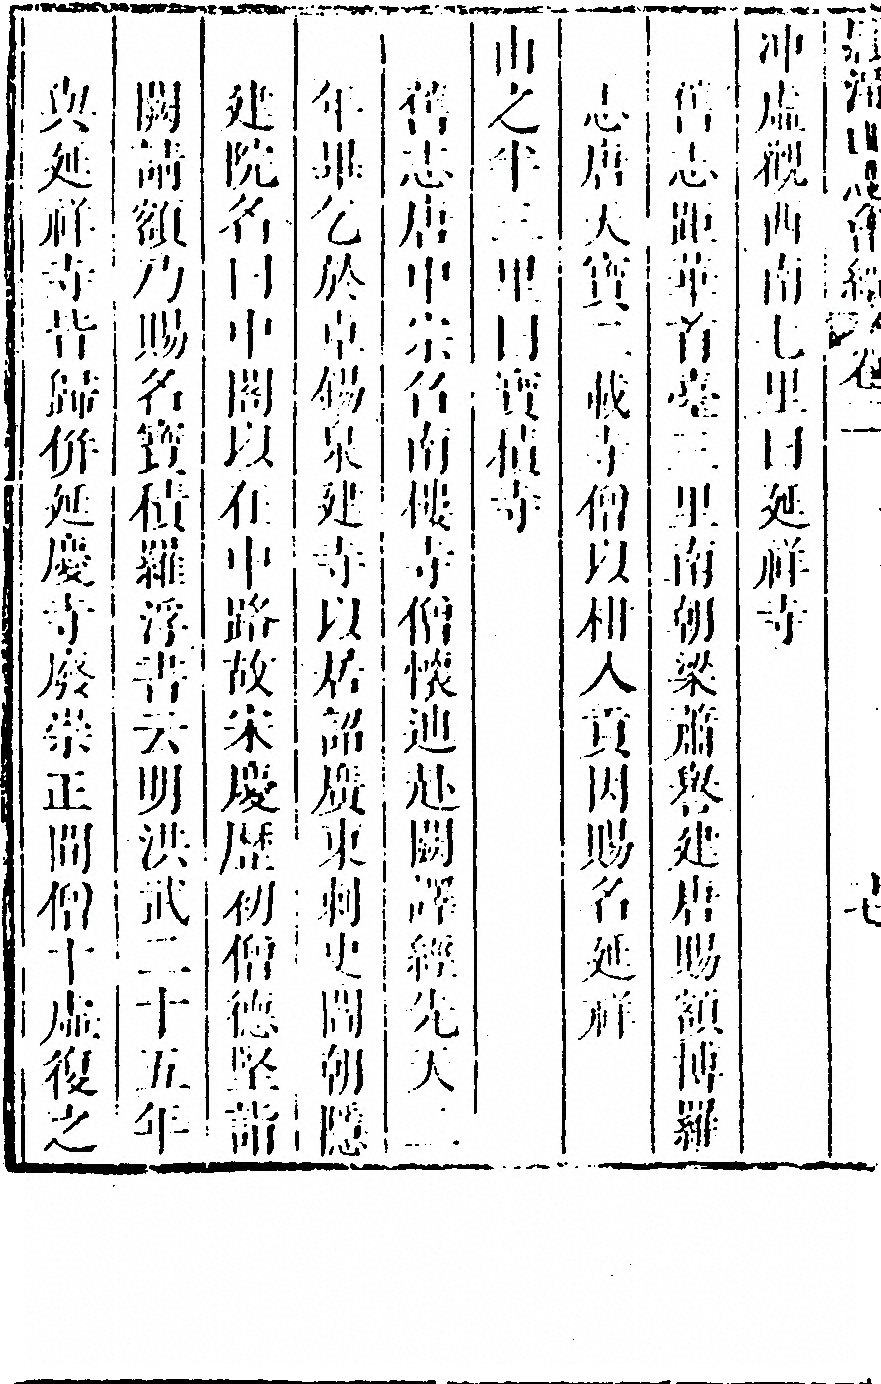 羅浮山志會編卷二
七
冲虛觀西南七里曰延祥寺
舊志距華首臺三里南朝梁蕭譽建唐賜額博羅
志唐天寶二載寺僧以柑入貢因賜名延祥
山之半三里曰寳積寺
舊志唐中宗召南樓寺僧懷迪赴闕譯經先天二
年畢乞於卓錫泉建寺以居詔廣東刺史閻朝隱
建院名曰中閣以在中路故宋慶歷初僧德堅詣
闕請額乃賜名寶積羅浮書云明洪武二十五年
與延祥寺皆歸併延慶寺廢崇正間僧十虛復之